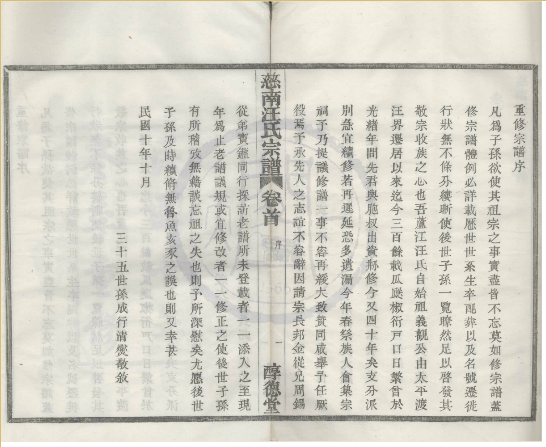 重修宗譜序
凡爲子孫欲使其祖宗之事實盡皆不忘莫如修宗譜蓋
修宗譜體例必詳載歷世世系生卒配葬以及名號遷徙
行狀無不條分縷晰使後世子孫一覽瞭然足以啓發其
敬宗收族之心也吾蘆江汪氏自始祖義觀公由太平渡
汪界遷居以來迄今三百餘載瓜瓞椒衍戶口日繁曾於
光緒年間先君與胞叔出貲修今又四十年矣支分派
別急宜續修若再遲延恐多遺漏今年春祭族人會集宗
祠予乃提議修譜一事不容再緩大致贊同咸舉予任厥
役焉予承先人之志誼不容辭因請宗長邦金從兄周錫
從弟賚鼎同行採訪老譜所未登載者一一添入之至現
年爲止老譜議規或宜修改者一一修正之使後世子孫
有所稽攷無籍談忘祖之失也則予所深慰矣尤愿後世
子孫及時續脩無魯魚亥豕之誤也則予又幸甚
民國十年十月
三十五世孫成行清熒敬敘
慈南汪氏宗譜
卷首
序
一
敦德堂